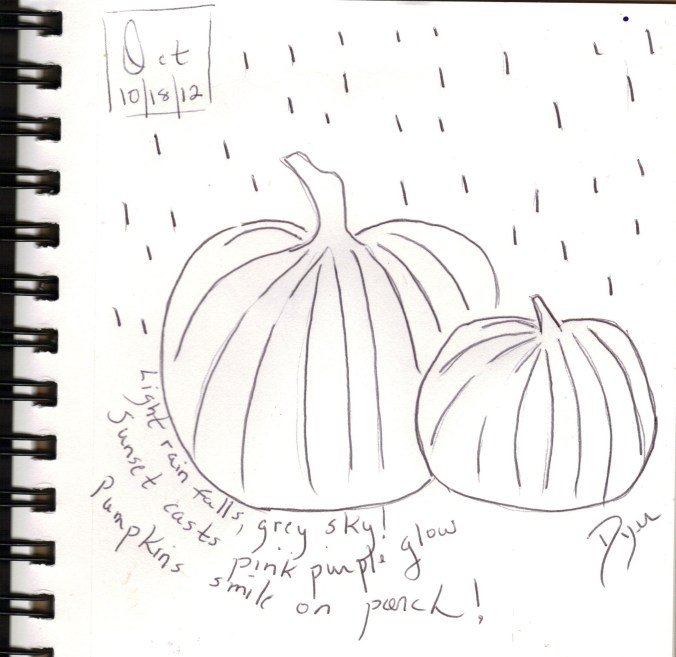 Oct
10/18/12
Light rain falls, grey sky!
Sunset casts pink purple glow
Pumpkins smile on porch!